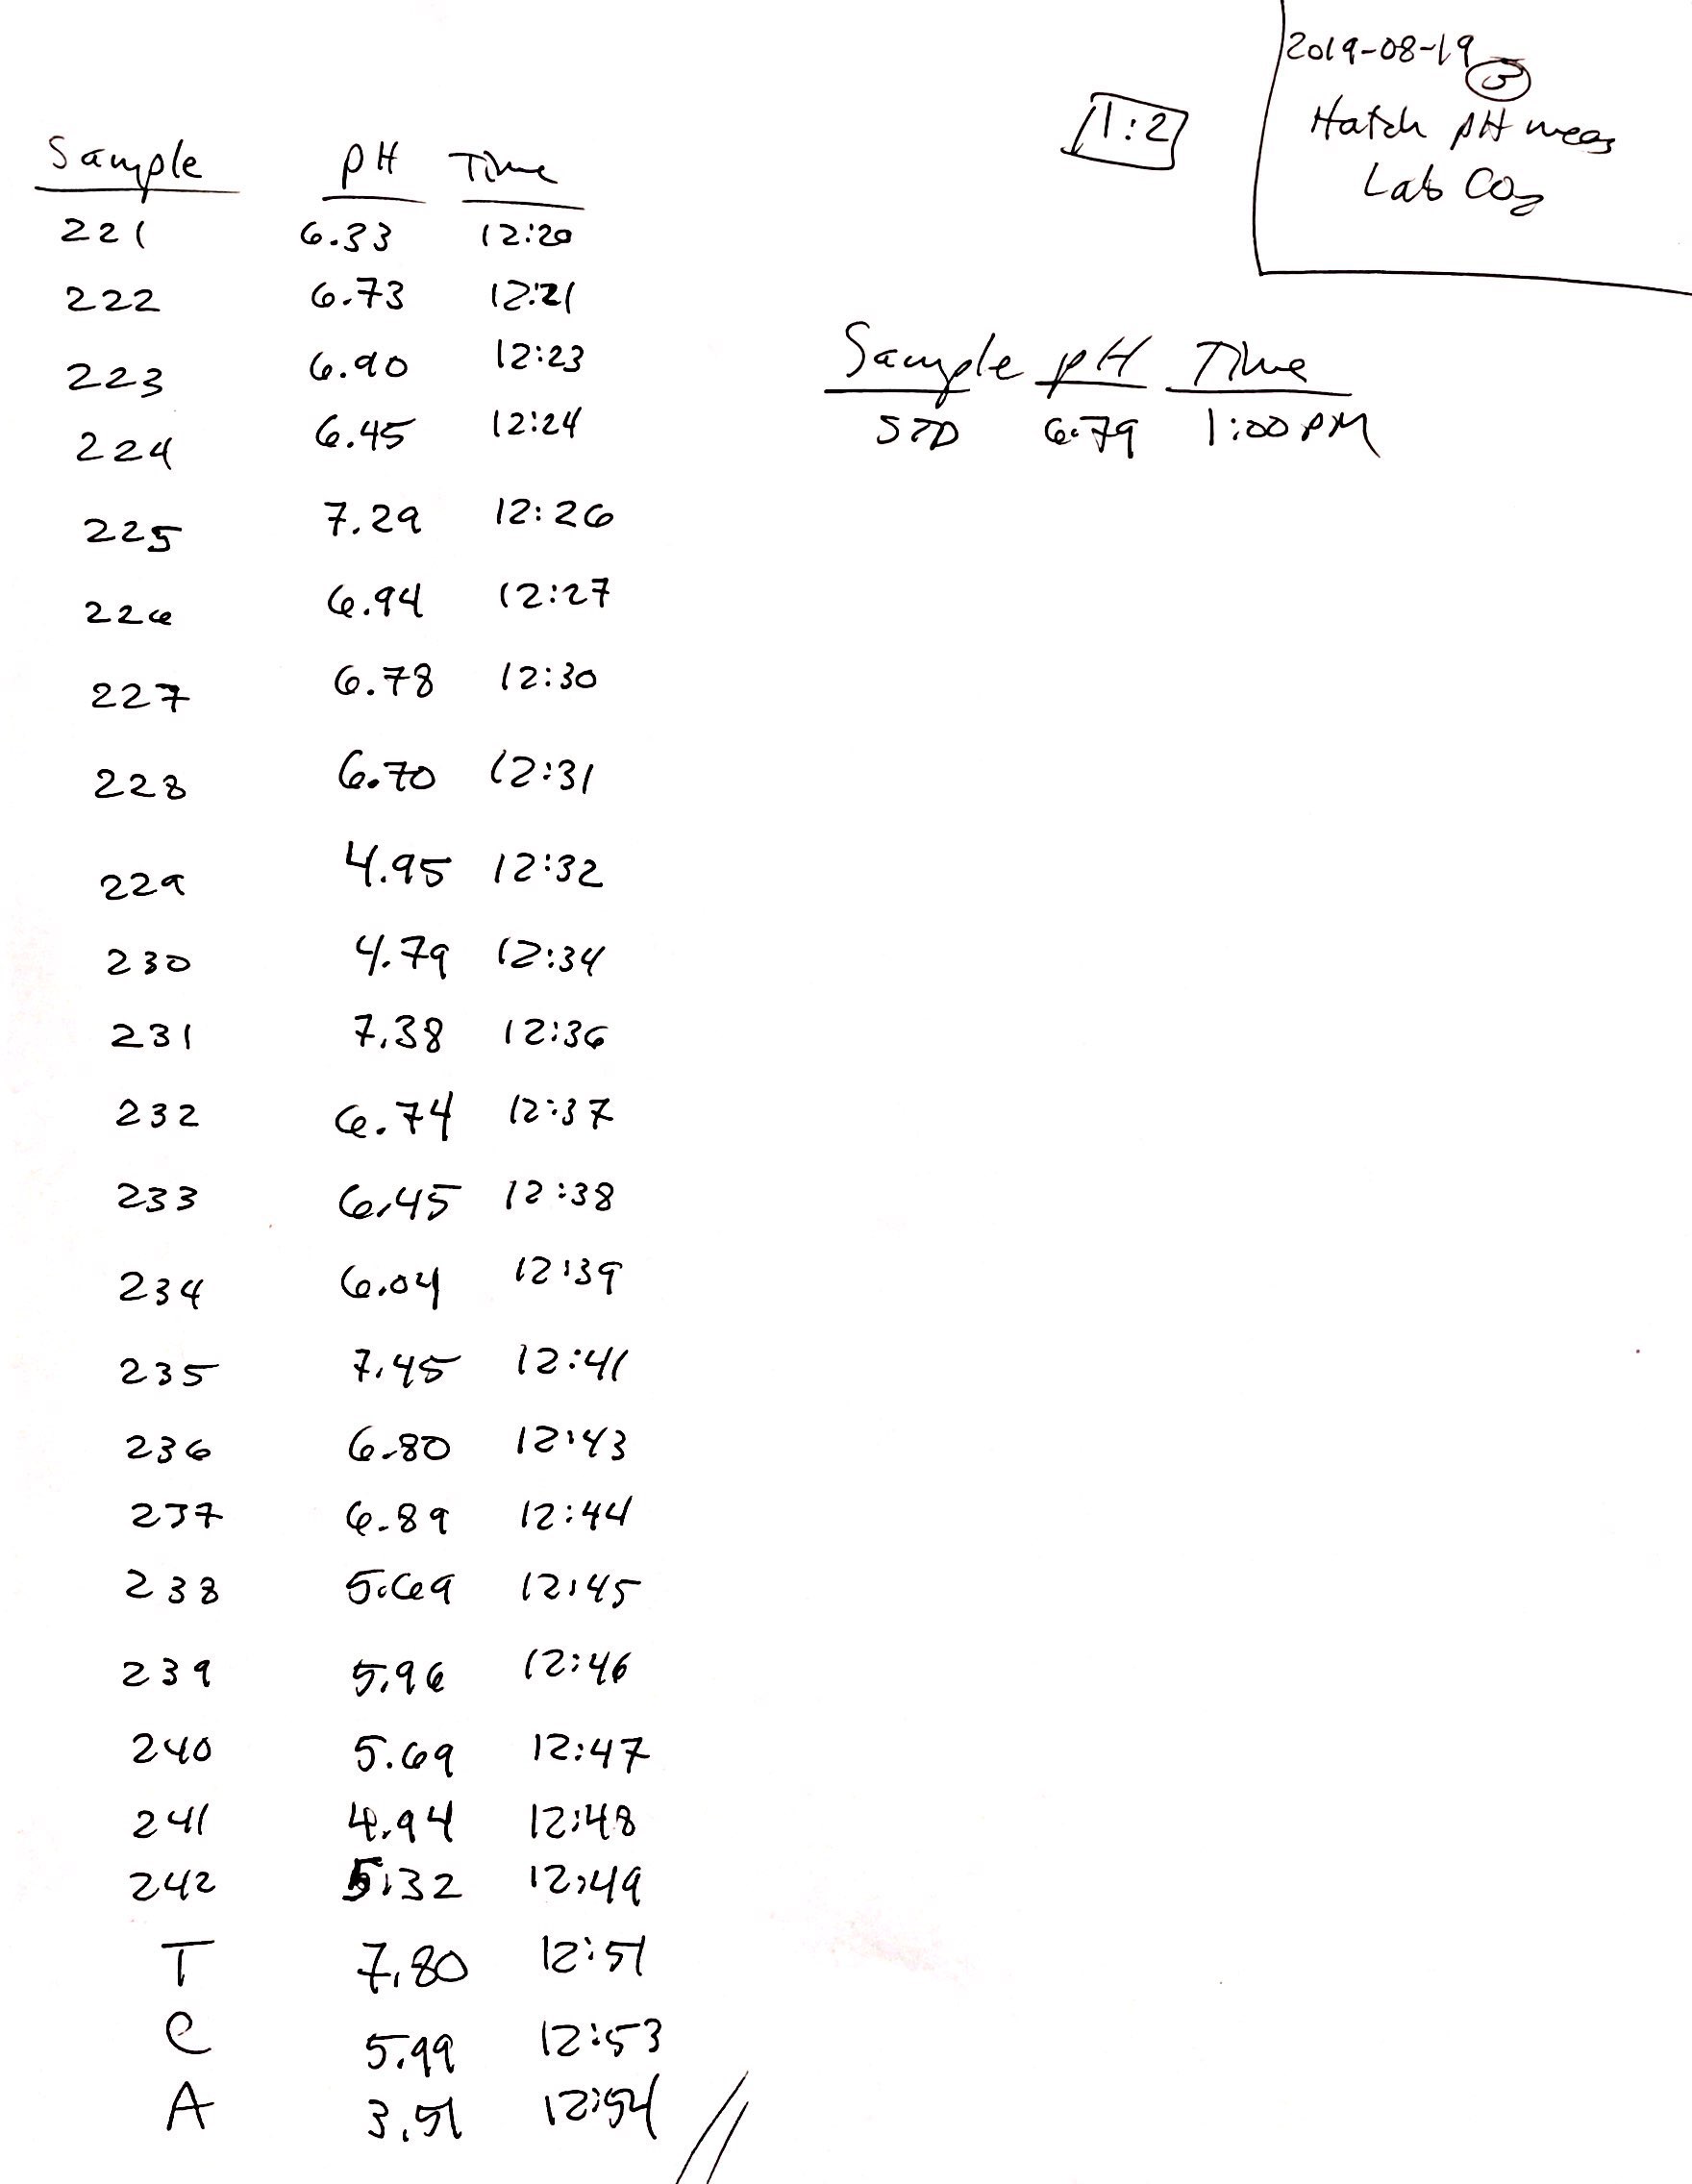 2019-08-19
5
Hatch pH meas
Lab CO2
1:2
Sample pH Time
221 6.33 12:20
222 6.73 12:21
223 6.90 12:23
224 6.45 12:24
225 7.29 12:26
226 6.94 12:27
227 6.78 12:30
228 6.70 12:31
229 4.95 12:32
230 4.79 12:34
231 7.38 12:36
232 6.74 12:37
233 6.45 12:38
234 6.04 12:39
235 7.45 12:41
236 6.80 12:43
237 6.89 12:44
238 5.69 12:45
239 5.96 12:46
240 5.69 12:47
241 4.94 12:48
242 5.32 12:49
T 7.80 12:51
C 5.99 12:53
A 3.51 12:54
Sample pH Time
STD 6.79 1:00 PM